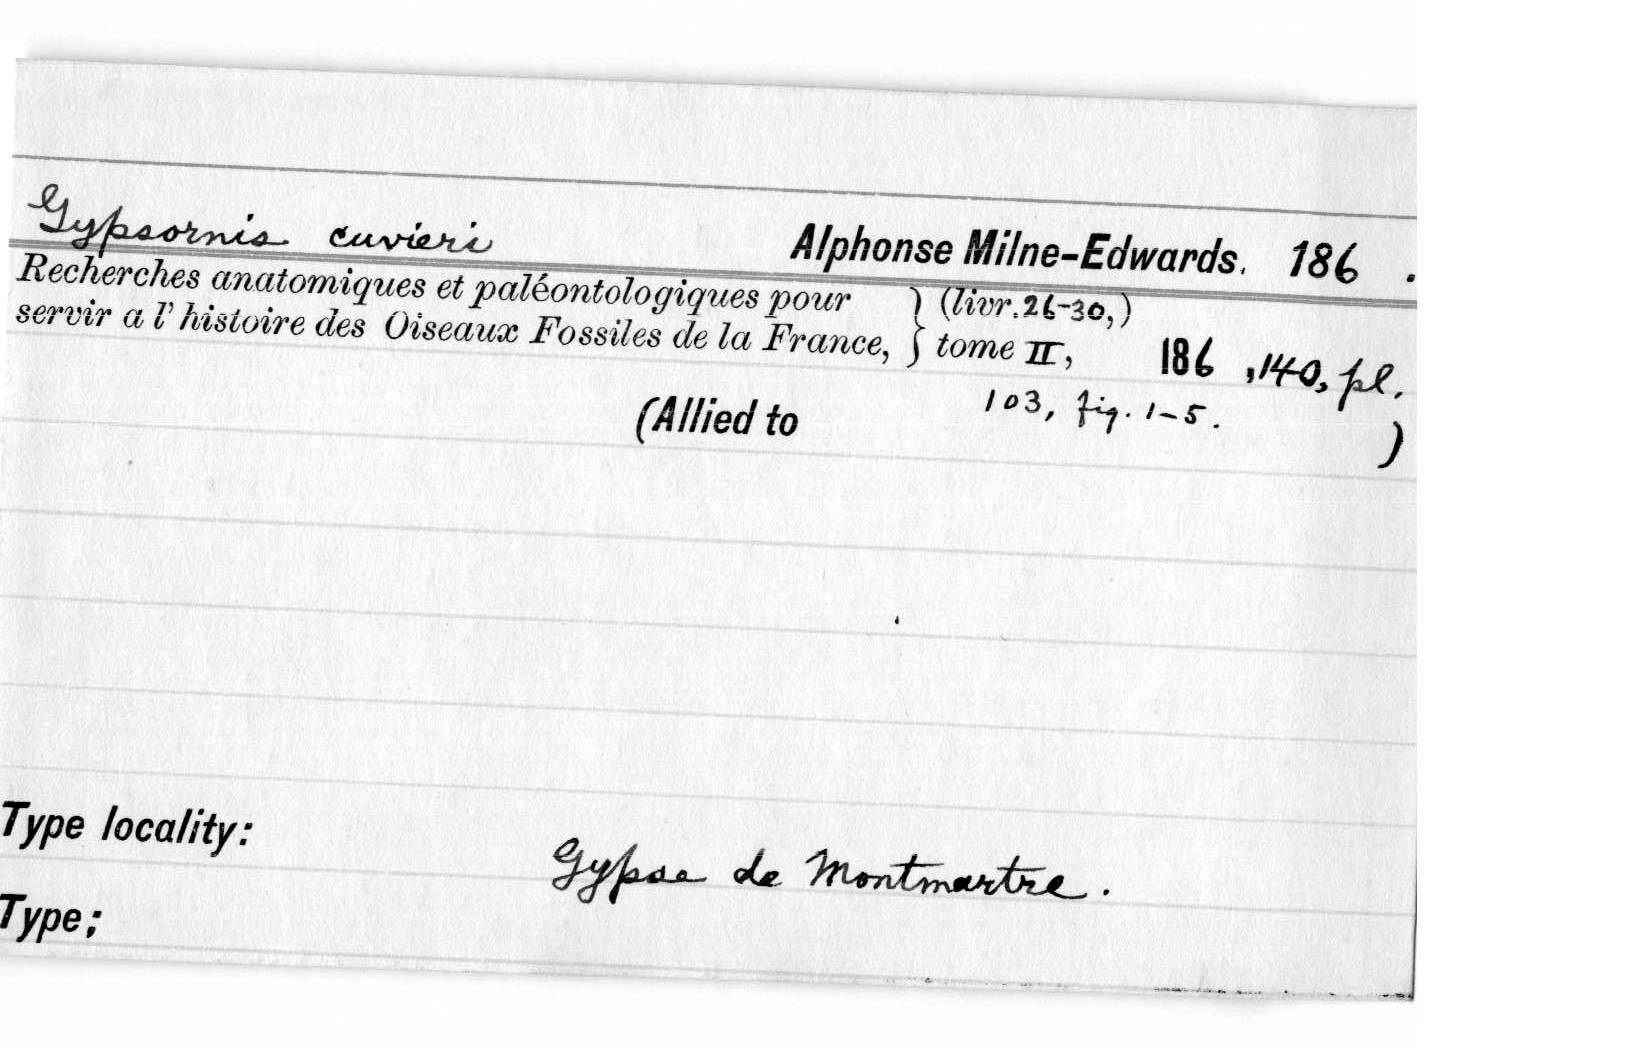 Gypsornis cuvieri Alphonse Milne-Edwards. 186 .
Recherches anatomiques et paléontologiques pour } (livr. 26-30,)
servir a l'histoire des Oiseaux Fossiles de la France, } tome II, 186 ,140, pl.
103, fig. 1-5.
(Allied to )
Type locality:
Gypse de Montmartre.
Type;